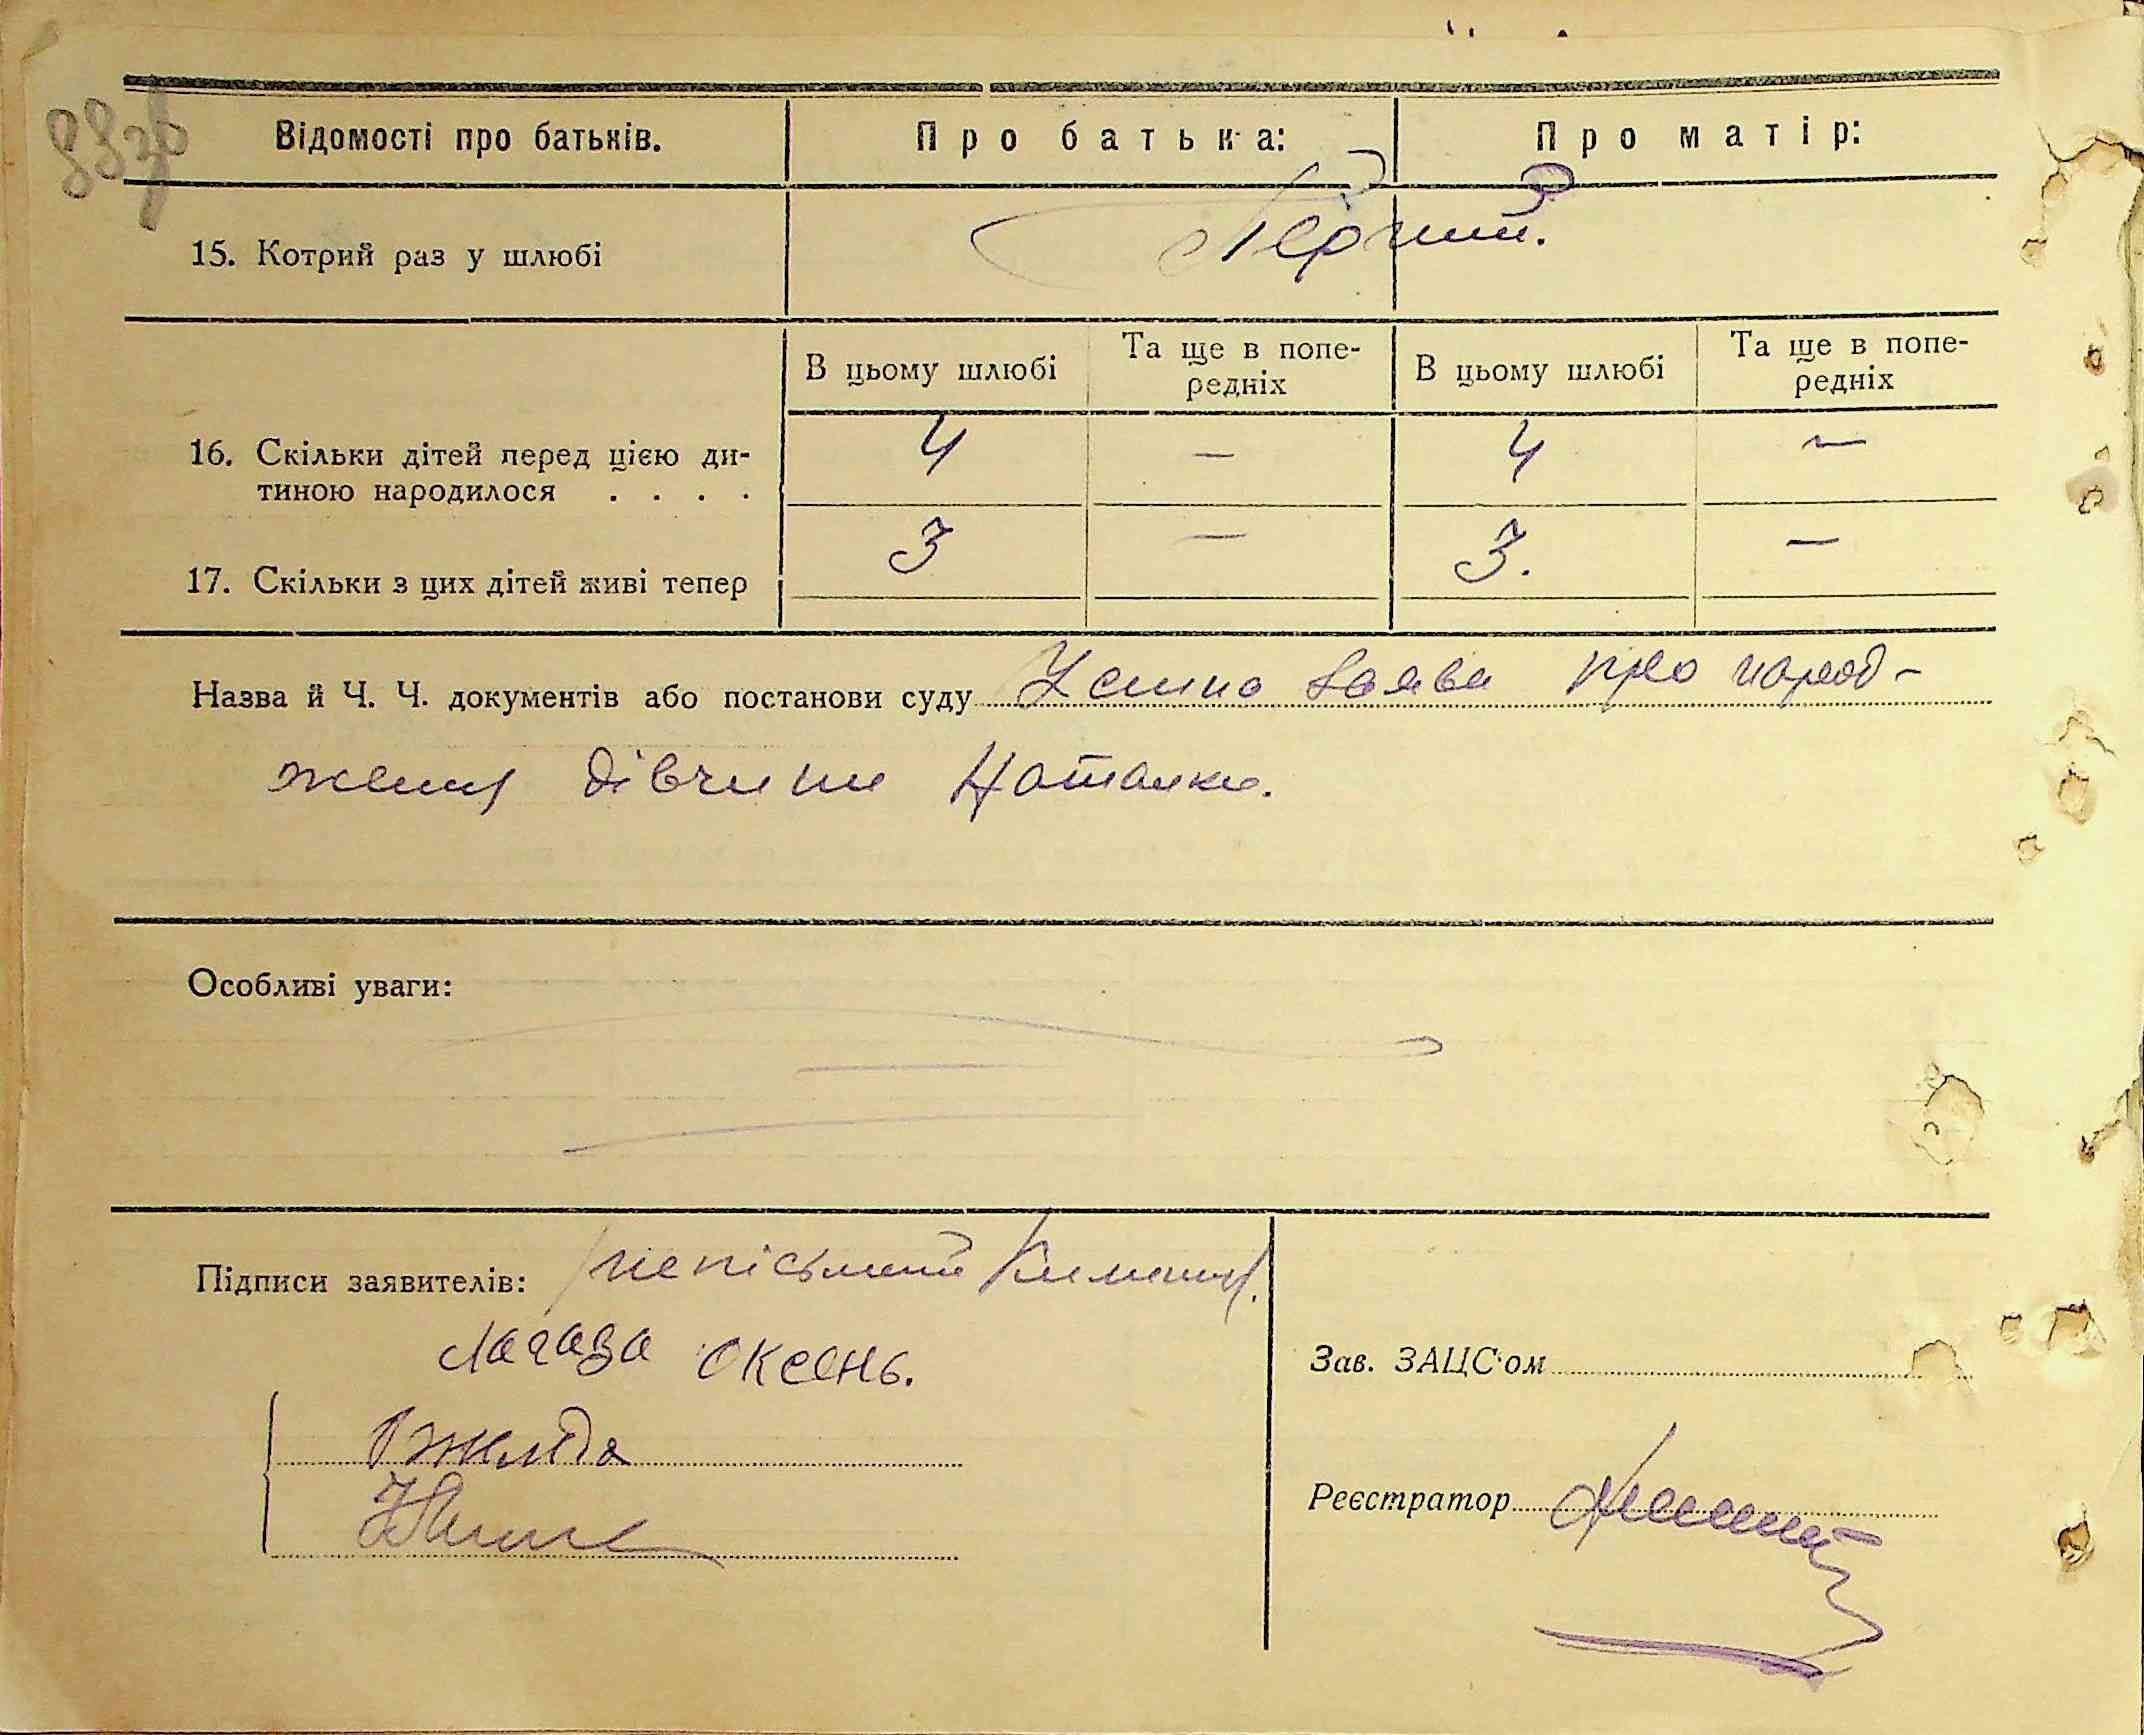 Відомості про батьків.
Про батька:
Про матір:
15. Котрий раз у шлюбі
Перший.
В цьому шлюбі
Та ще в попе-
редніх
В цьому шлюбі
Та ще в попе-
редніх
16. Скільки дітей перед цією ди-
тиною народилося . . . .
4 — 4 —
17. Скільки з цих дітей живі тепер
3 — 3. —
Назва й Ч. Ч. документів або постанови суду Усина заява про народ-
женя дівчини Наталки.
Особливі уваги:
Підписи заявителів: непісьмений
Лагаза Оксень.
Зав. ЗАЦС'ом
Реєстратор